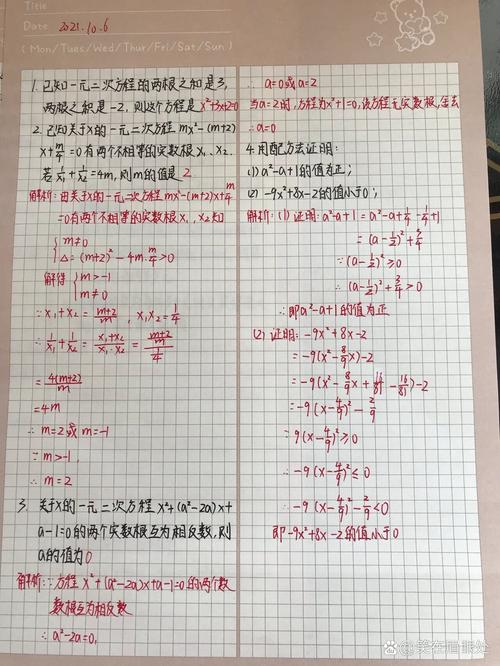 Title
Date 2021.10.6
(Mon/Tues/Wed/Thur/Fri/Sat/Sun)
1. 已知一元二次方程的两根之和是3,
两根之积是-2, 则这个方程是 x²+3x+2=0
2. 已知关于x的一元二次方程 mx²-(m+2)
x+m/4=0有两个不相等的实数根 x₁、x₂.
若 1/x₁+1/x₂=4m, 则m的值是 2
解析:由关于x的一元二次方程mx²-(m+2)x+m/4
=0有两个不相等的实数根x₁、x₂知
{m≠0
Δ=(m+2)²-4m·m/4>0
解得{m>-1
m≠0
∵x₁+x₂=(m+2)/m, x₁x₂=1/4
∴1/x₁+1/x₂=(x₁+x₂)/(x₁·x₂)=((m+2)/m)/(1/4)
=4(m+2)/m
=4m
∴m=2或m=-1
∵m>-1
∴m=2
3. 关于x的一元二次方程x²+(a²-2a)x+
a-1=0的两个实数根互为相反数, 则
a的值为0
解析:∵方程x²+(a²-2a)x+a-1=0的两个数
数根互为相反数
∴a²-2a=0,
∴a=0或a=2
当a=2时,方程为x²+1=0,该方程无实数根,舍去
∴a=0
4.用配方法证明:
(1)a²-a+1的值为正;
(2)-9x²+8x-2的值小于0;
解析:(1)证明:a²-a+1=a²-a+1/4-1/4+1
=(a-1/2)²+3/4
∵(a-1/2)²≥0
∴(a-1/2)²+3/4>0
∴即a²-a+1的值为正
(2)证明:-9x²+8x-2
=-9(x²-8/9x)-2
=-9(x²-8/9x+16/81-16/81)-2
=-9(x-4/9)²-2/9
∵9(x-4/9)²≥0
∴-9(x-4/9)²≤0
∴-9(x-4/9)²-2/9<0
即-9x²+8x-2的值小于0
笑在眉眼处